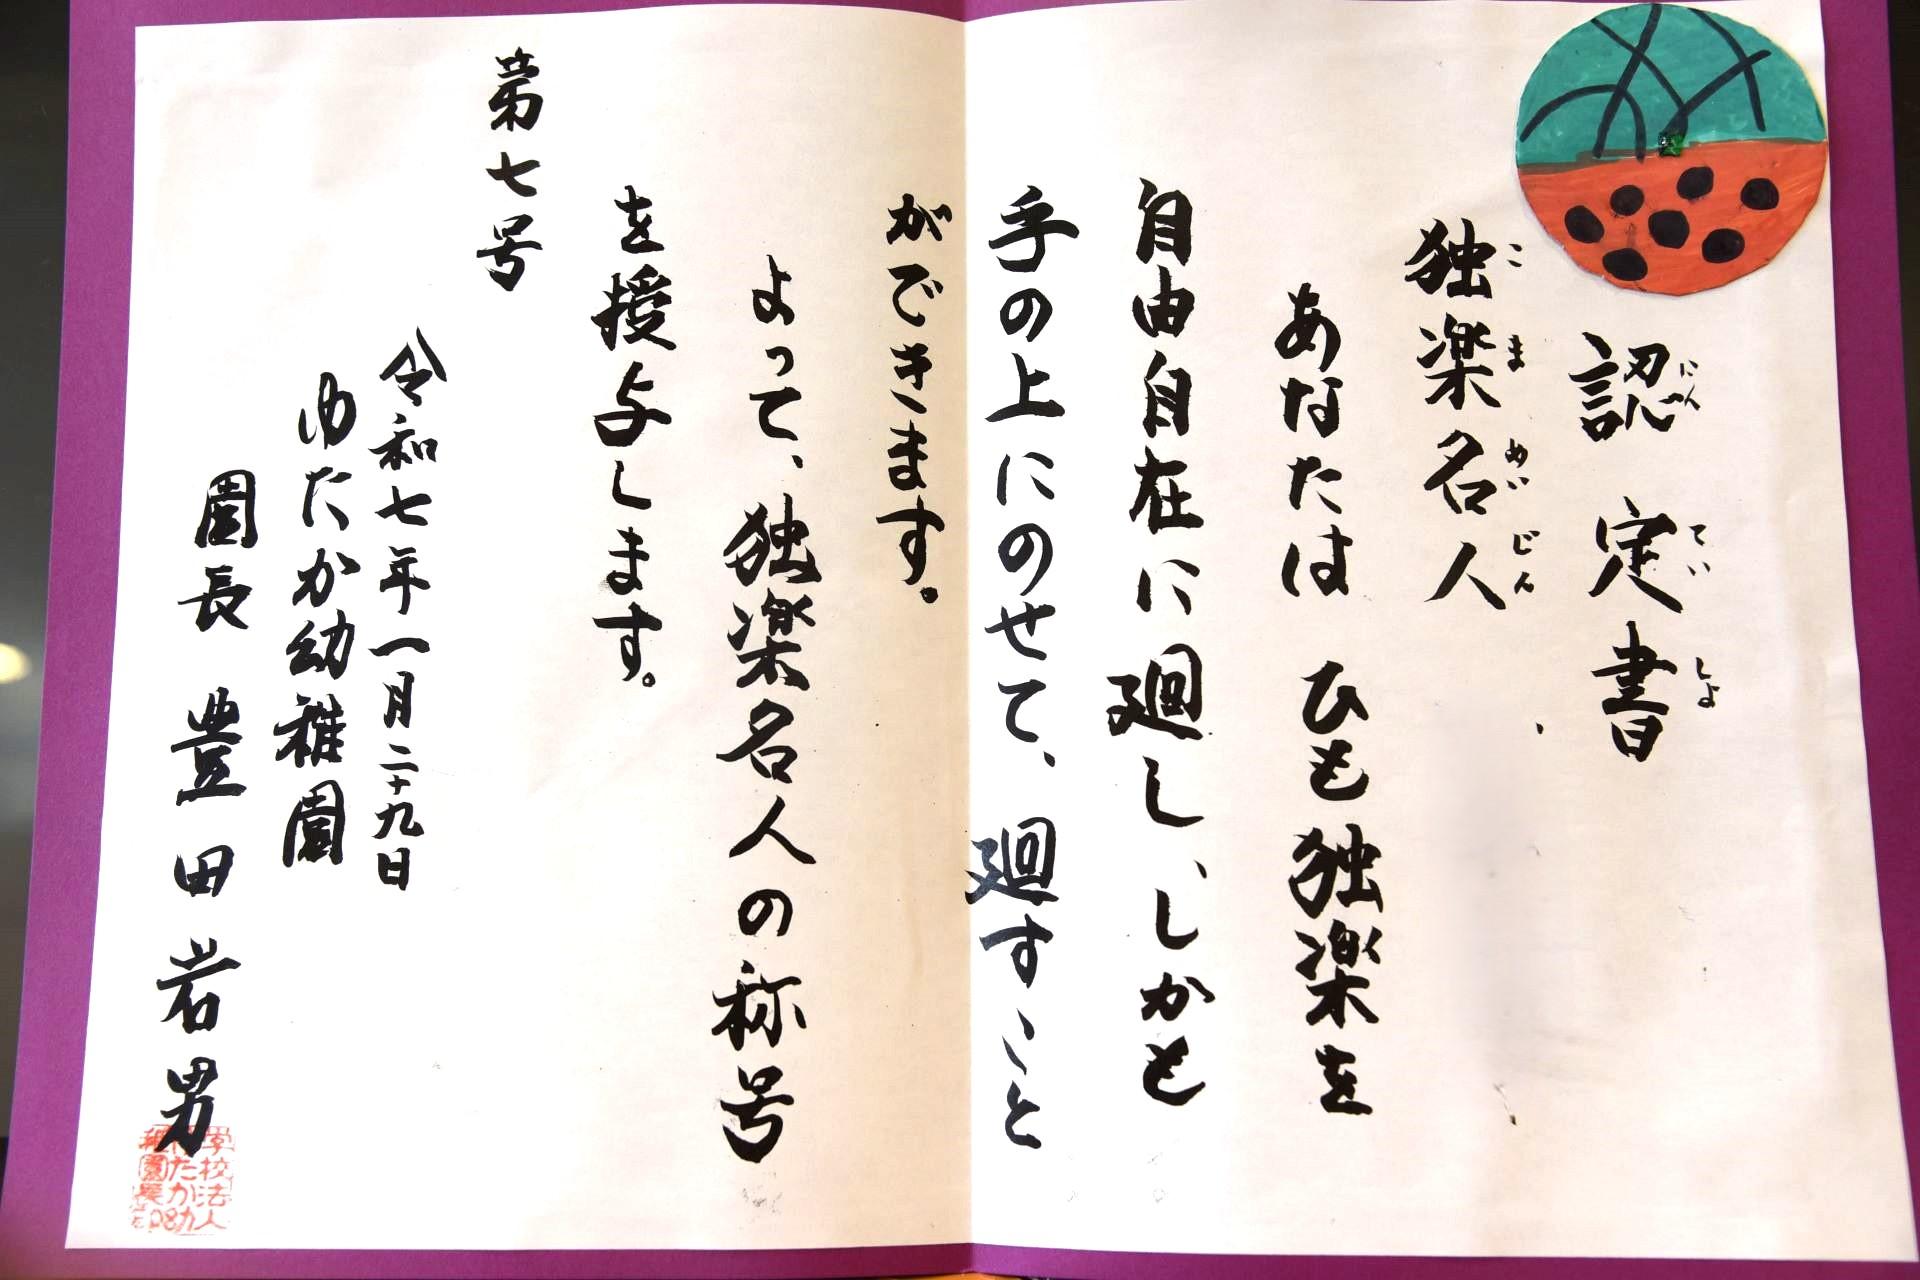 認定書
にんていしょ
独楽名人
こまめいじん
あなたは ひも独楽を
自由自在に廻し、しかも
手の上にのせて、廻すこと
ができます。
よって、独楽名人の称号
を授与します。
第七号
令和七年一月二十九日
ゆたか幼稚園
園長 豊田岩男
学校法人
たか幼
稚園長